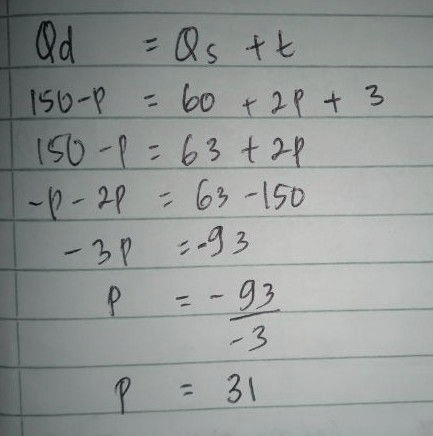 Qd = Qs + t
150-P = 60 + 2P + 3
150 - P = 63 + 2P
-P - 2P = 63 - 150
- 3P = -93
P = - 93
-3
P = 31